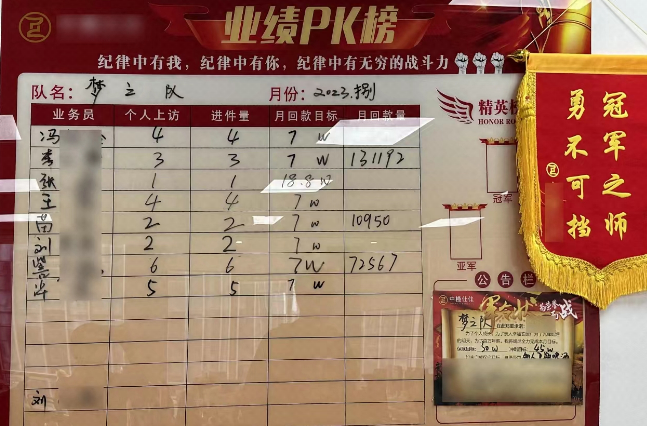 业绩PK榜
纪律中有我，纪律中有你，纪律中有无穷的战斗力
队名：梦之队 月份：2023.捌
业务员 个人上访 进件量 月回款目标 月回款量
冯 4 4 7W
李 3 3 7W 131192
张 1 1 18.8W
王 4 4 7W
苗 2 2 7W 10950
刘 2 2 7W
6 6 7W 72567
5 5 7W
刘
精英榜
HONOR RO
冠军
亚军
公告栏
军令状
战
梦之队
30W 45W
冠军之师
勇不可挡